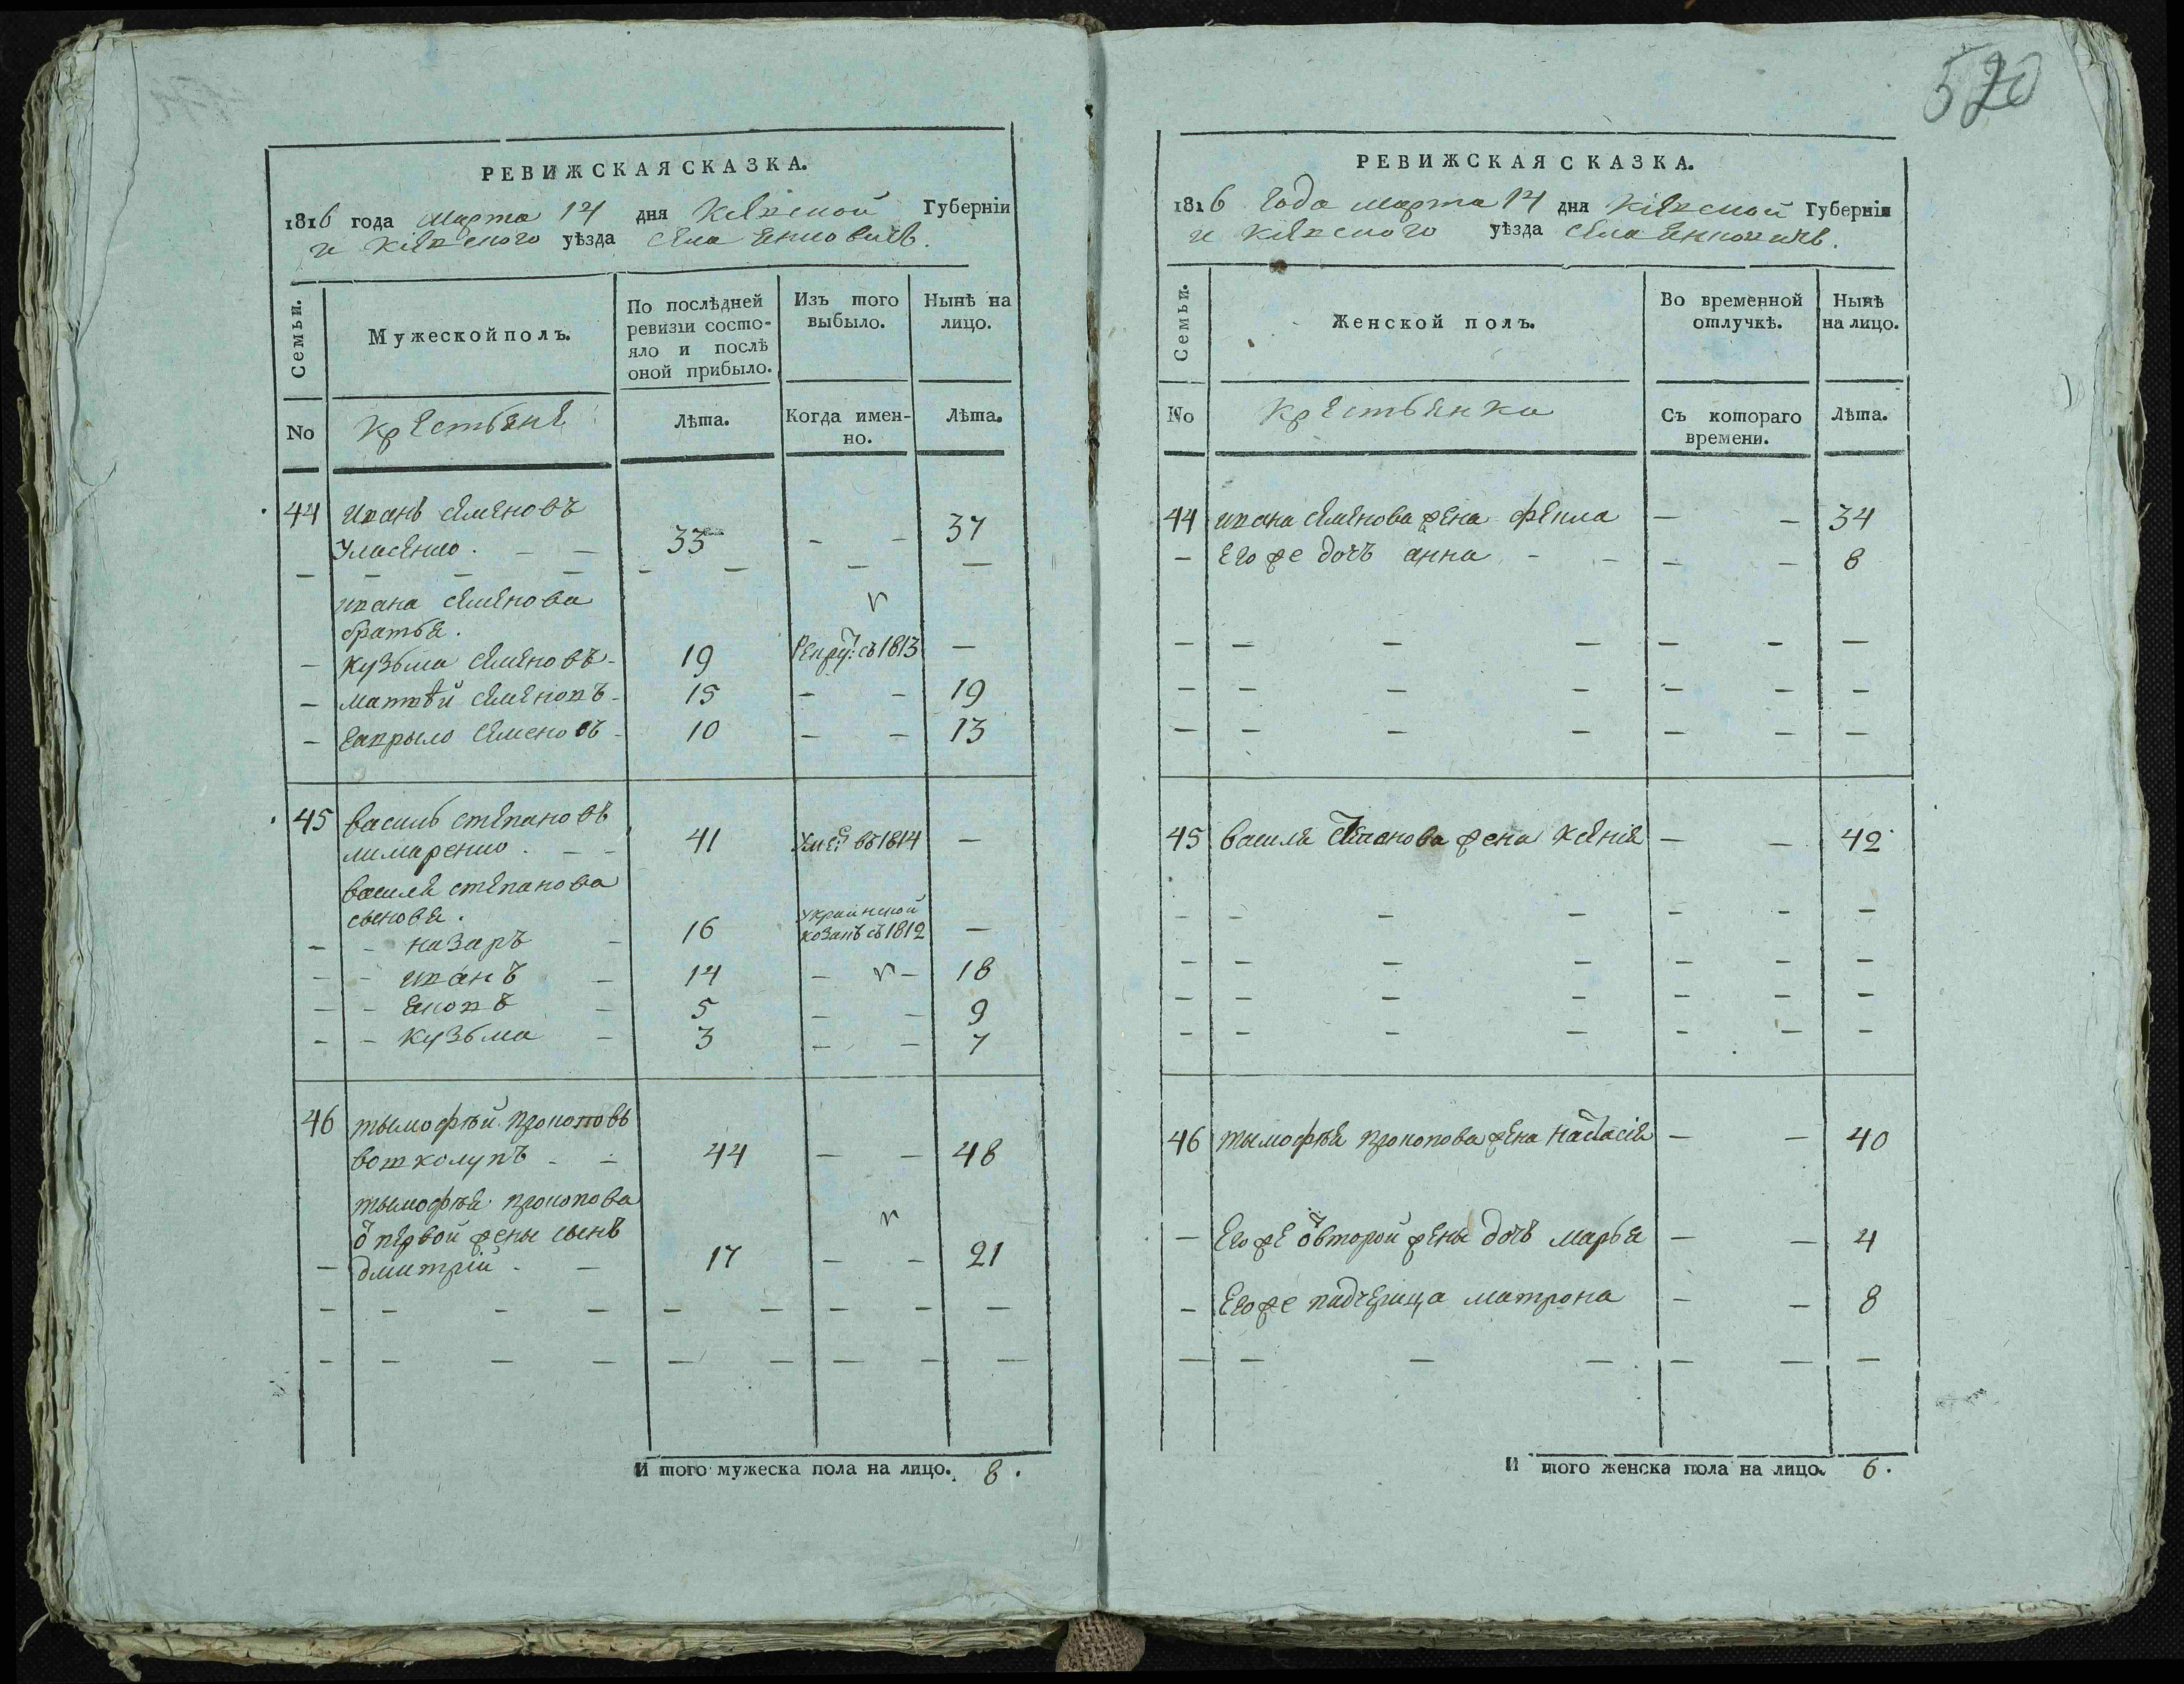 520
РЕВИЖСКАЯ СКАЗКА.
1816 года марта 14 дня Кіевской Губерніи
и Кіевского уѣзда села
Семьи.
Мужеской полъ.
По послѣдней ревизіи состояло и послѣ оной прибыло.
Изъ того выбыло.
Нынѣ на лицо.
No
Крестьяне
Лѣта.
Когда именно.
Лѣта.
44 иванъ семеновъ
Уласенко. — — 33 — — 37
ивана семенова
братья.
— кузьма семеновъ — 19 Рекру: въ 1813 —
— матвѣй семеновъ — 15 — — 19
— гаврыло семеновъ — 10 — — 13
45 василь степановъ
лимаренко. — — 41 Уме: въ 1814 —
василя степанова
сыновя.
— — назаръ — 16 украинской козакъ въ 1812 —
— — иванъ — 14 — — 18
— — яковъ — 5 — — 9
— — кузьма — 3 — — 7
46 тымофѣй прокоповъ
вовколупъ — — 44 — — 48
тымофѣя прокопова
о первой жены сынъ
— дмитрій — 17 — — 21
И того мужеска пола на лицо. 8.
РЕВИЖСКАЯ СКАЗКА.
1816 года марта 14 дня Кіевской Губерніи
и Кіевского уѣзда села
Семьи.
Женской полъ.
Во временной отлучкѣ.
Нынѣ на лицо.
No
Крестьянки
Съ котораго времени.
Лѣта.
44 ивана семенова жена фекла — — 34
— Его же дочь анна — — 8
45 василя степанова жена ксенія — — 42
46 тымофѣя прокопова жена настасія — — 40
— Его же от второй жены дочь марья — — 4
— Его же падчерица матрона — — 8
И того женска пола на лицо. 6.